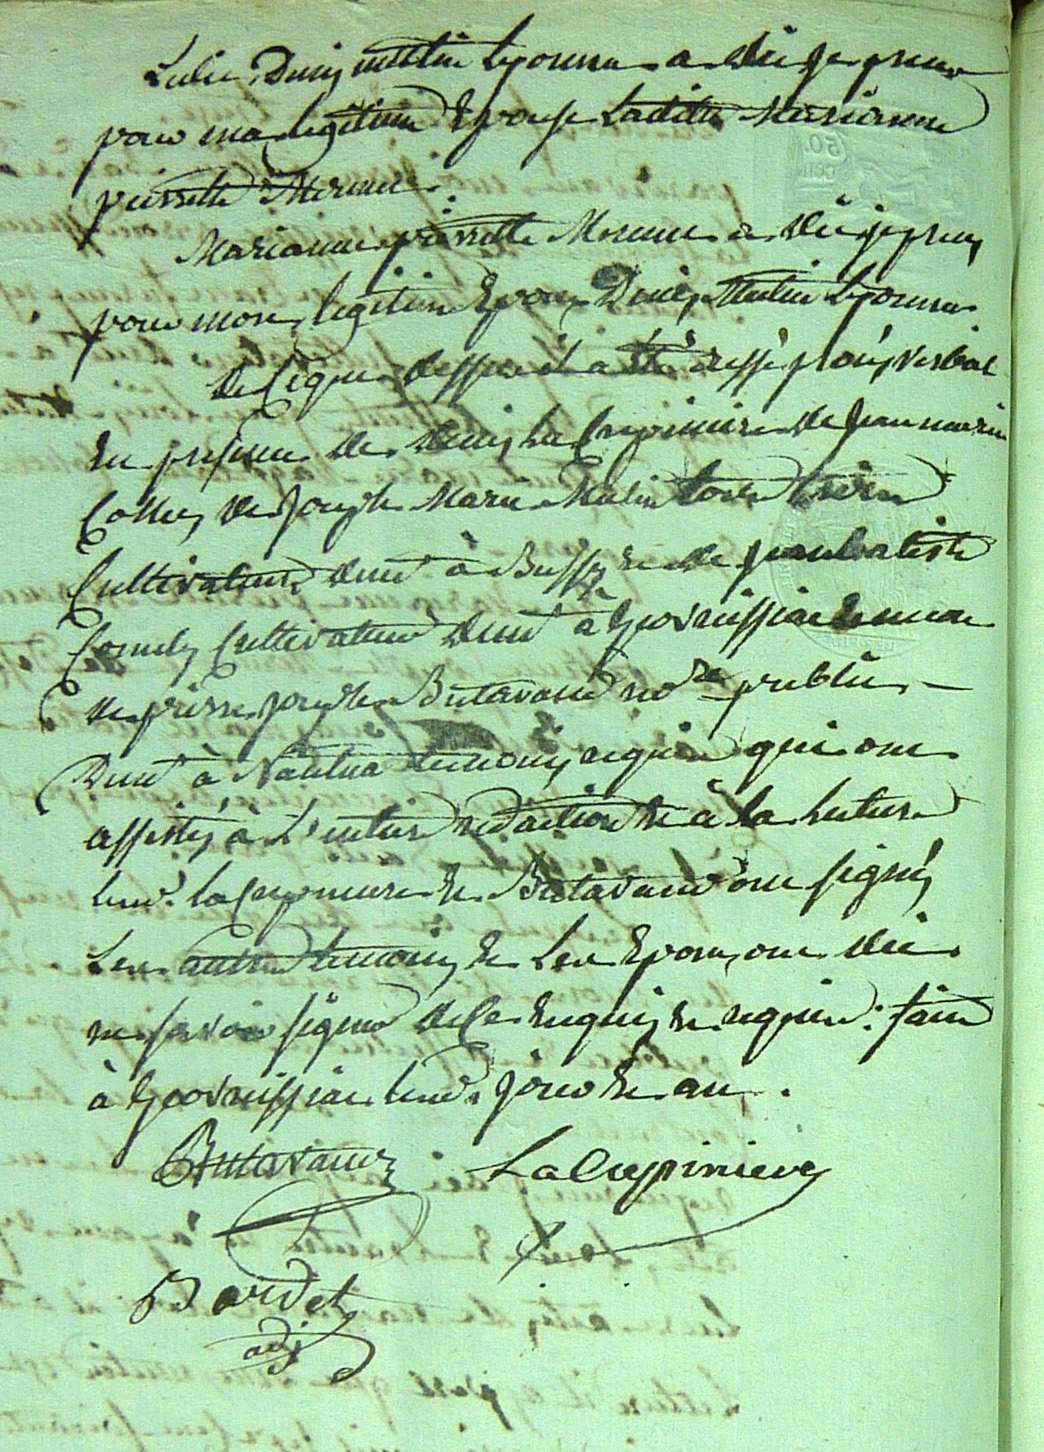 Ledit Denis Matin Lyonna a dit je prens
pour ma légitime Epouse Ladite Marianne
pierrette Mermet
Marianne pierrette Mermet a dit je prens
pour mon légitime Epoux Denis Matin Lyonna
De Ce que dessus il a été dressé procès verbal
En présence de Denis La Crepiniere de jean marie
de Joseph Marie Matin tous trois
Cultivateurs demt à de jean baptiste
Cultivateur demt à Geovreissiat Encore
de pierre joseph Butavand nore public
Demt à Nantua temoins requis qui ont
assistés à L'entiere rédaction et à la lecture
lesd. la Crepiniere et Butavand ont signés
Les autres temoins et Les Epoux ont dit
ne savoir signer de Ce Enquis et requis. fait
à Geovreissiat lesd. jour et an.
Butavand LaCrepiniere
Bardet
adj
50